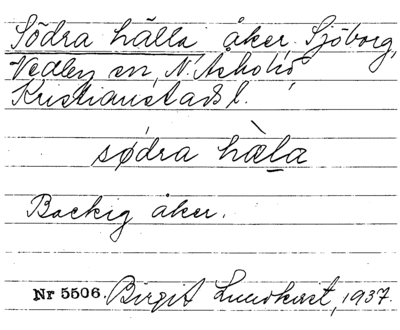 Södra hälla åker. Sjöborg,
Vedby sn, N. Åsbo hd
Kristianstads l.
sødra hæ̀la
Backig åker.
Nr 5506. Birgit Lundkvist, 1937.